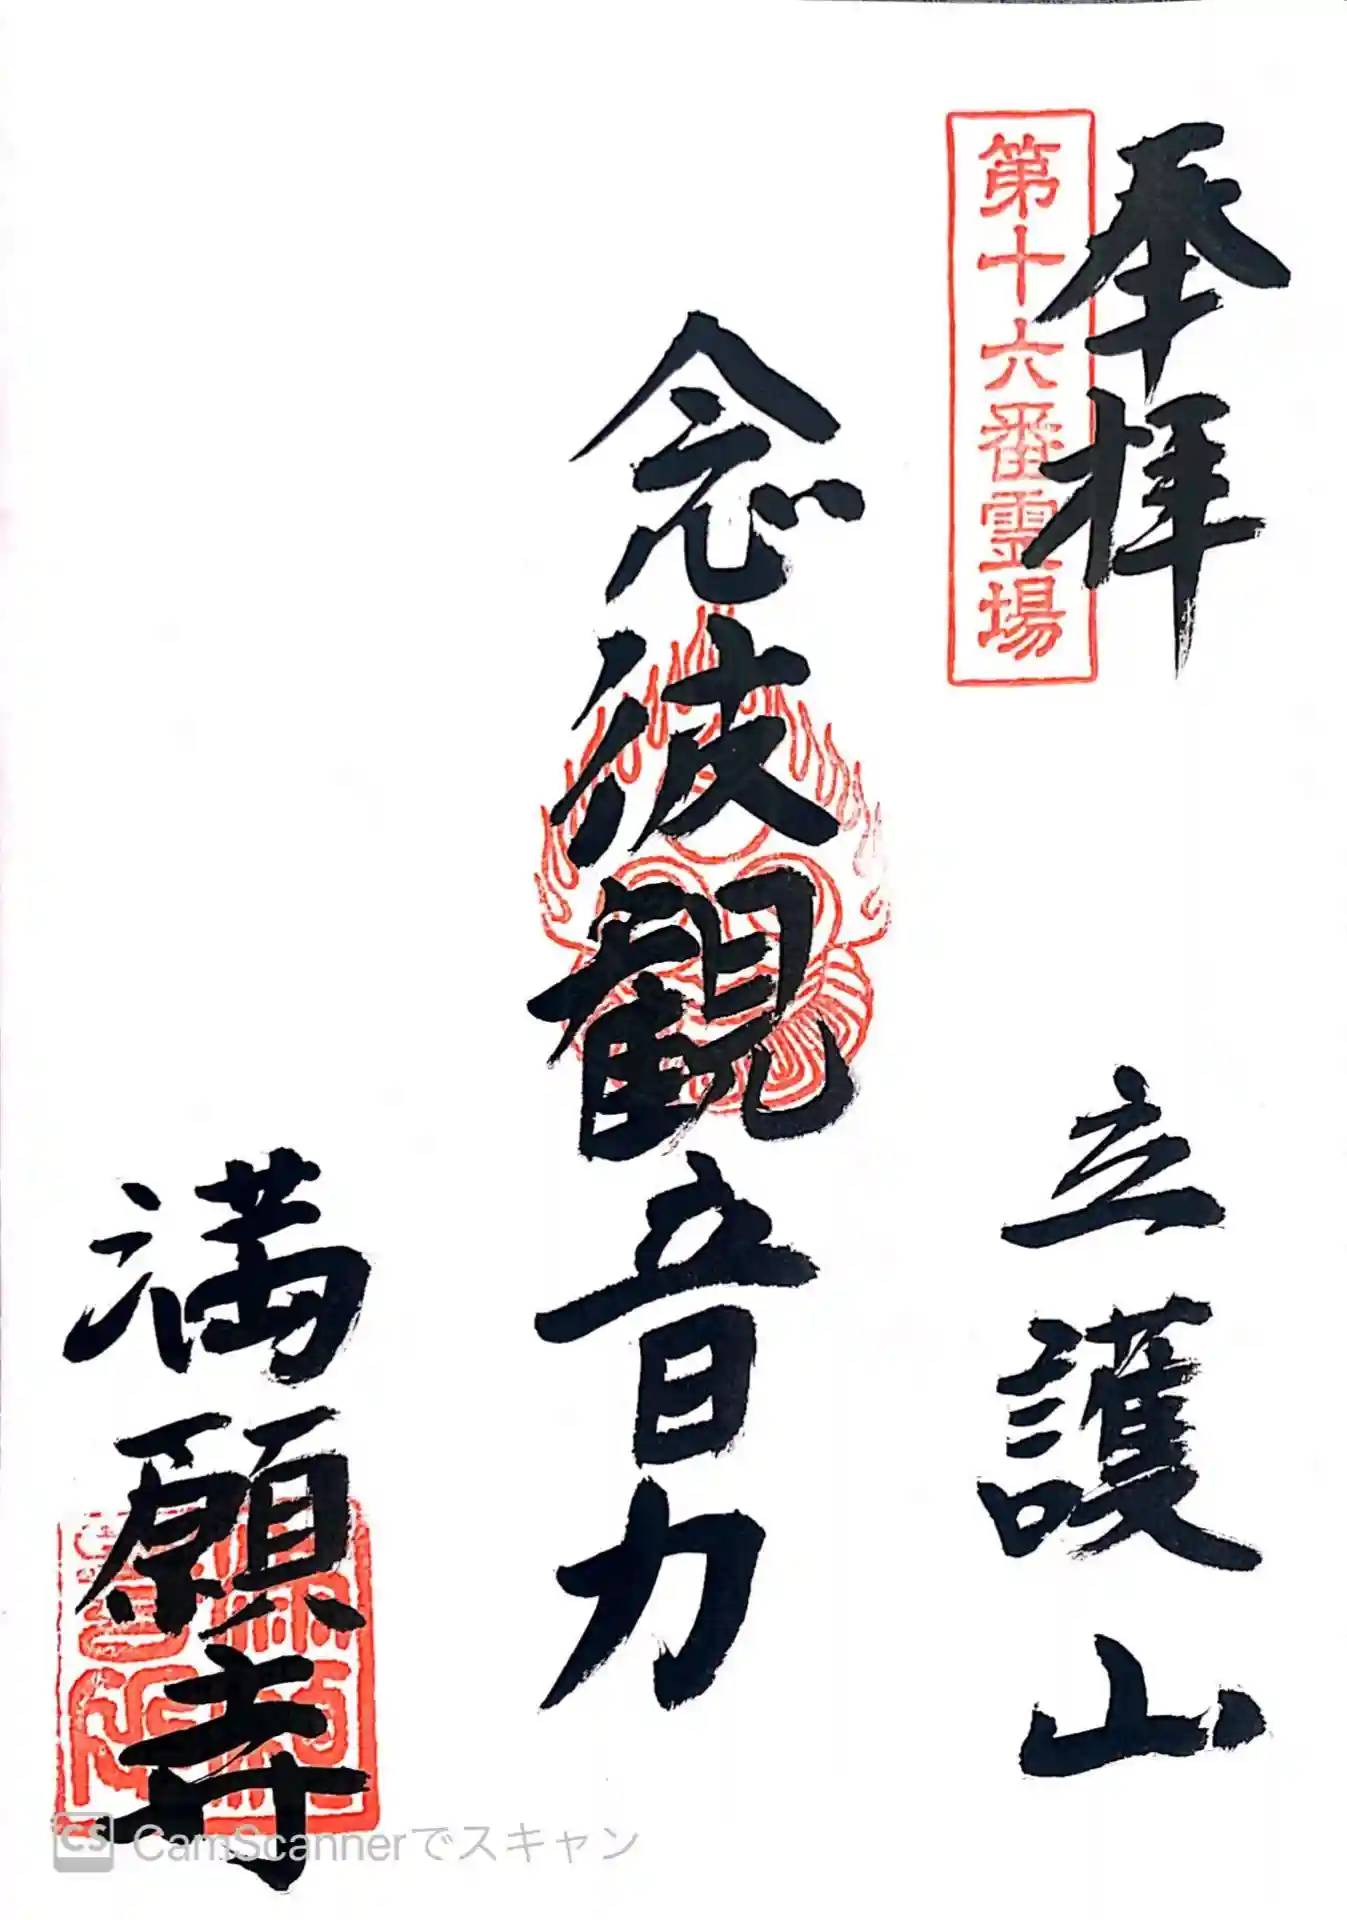 奉拝
立護山
第十六番霊場
念彼観音力
満願寺
CS CamScannerでスキャン